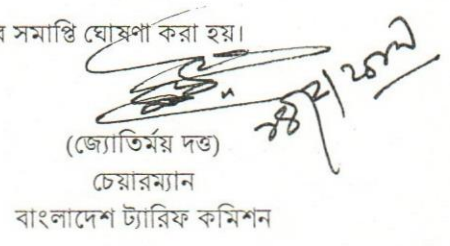 র সমাপ্তি ঘোষণা করা হয়।
(জ্যোতির্ময় দত্ত)
চেয়ারম্যান
বাংলাদেশ ট্যারিফ কমিশন